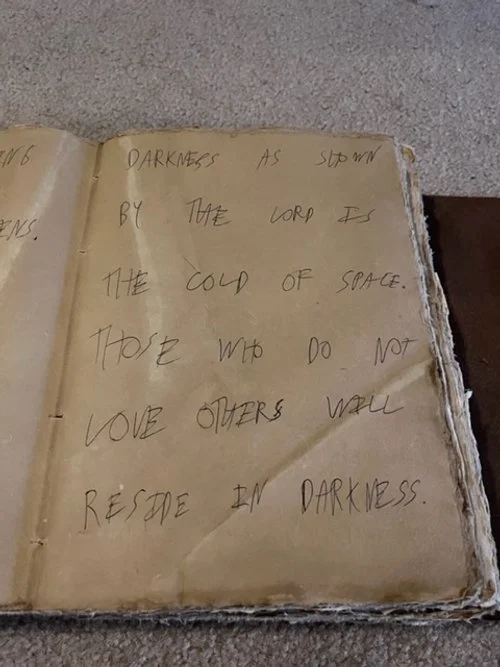 NG
DARKNESS AS SHOWN
BY THE LORD IS
ENS.
THE COLD OF SPACE.
THOSE WHO DO NOT
LOVE OTHERS WILL
RESIDE IN DARKNESS.